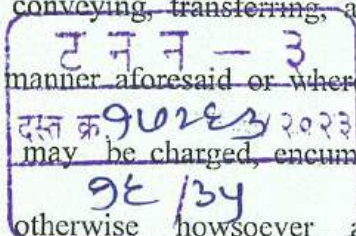 conveying, transferring, a
ट न न - ३
manner aforesaid or where
दस्त क्र. १७२६३ २०२३
may be charged, encum
१६ /३५
otherwise howsoever a